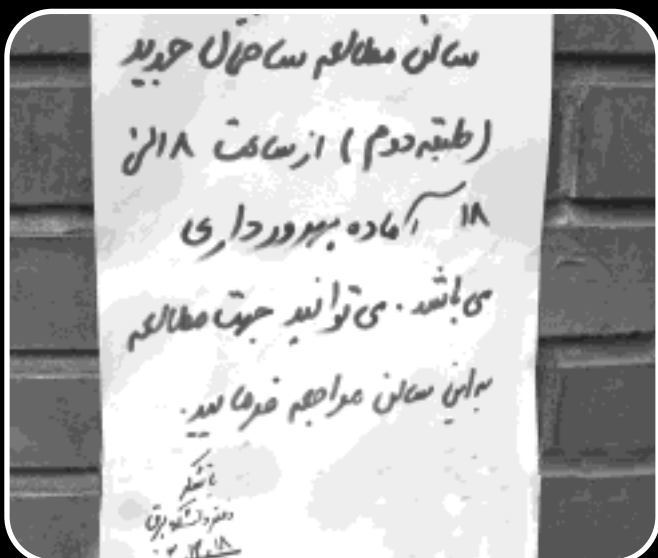 سالن مطالعه ساختمان جدید
(طبقه دوم) از ساعت ۸ الی
۱۸ آماده بهره‌برداری
می باشد. می توانید جهت مطالعه
به این سالن مراجعه فرمایید.
با تشکر
دفتر دانشکده برق